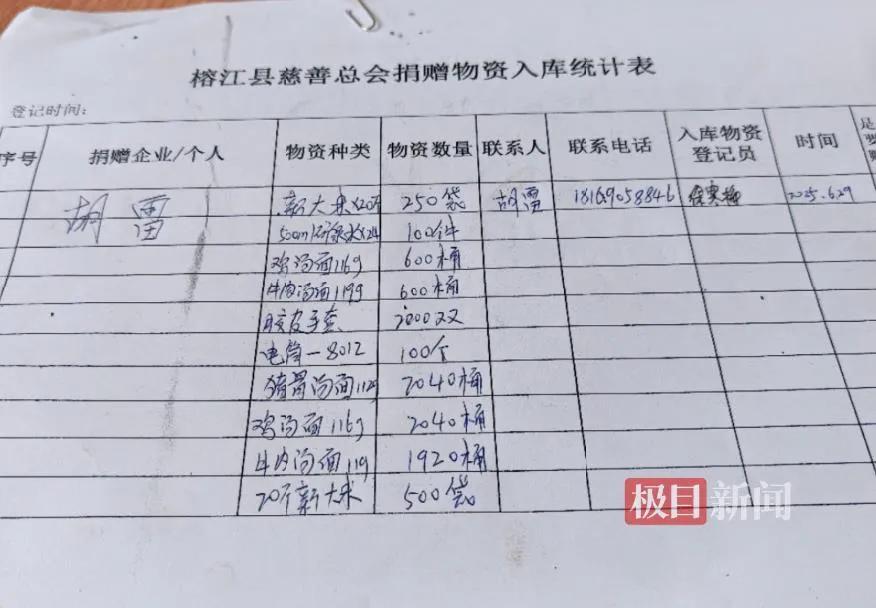 榕江县慈善总会捐赠物资入库统计表
登记时间：
序号 捐赠企业/个人 物资种类 物资数量 联系人 联系电话 入库物资登记员 时间 是
胡雷 新大米 250袋 胡雷 18169058846 2025.6.29
500ml 100件
鸡汤面116g 600桶
牛肉汤面119g 600桶
胶皮手套 2000双
电筒-8012 100个
猪骨汤面112g 2040桶
鸡汤面116g 2040桶
牛肉汤面119 1920桶
20斤新大米 500袋
极目新闻